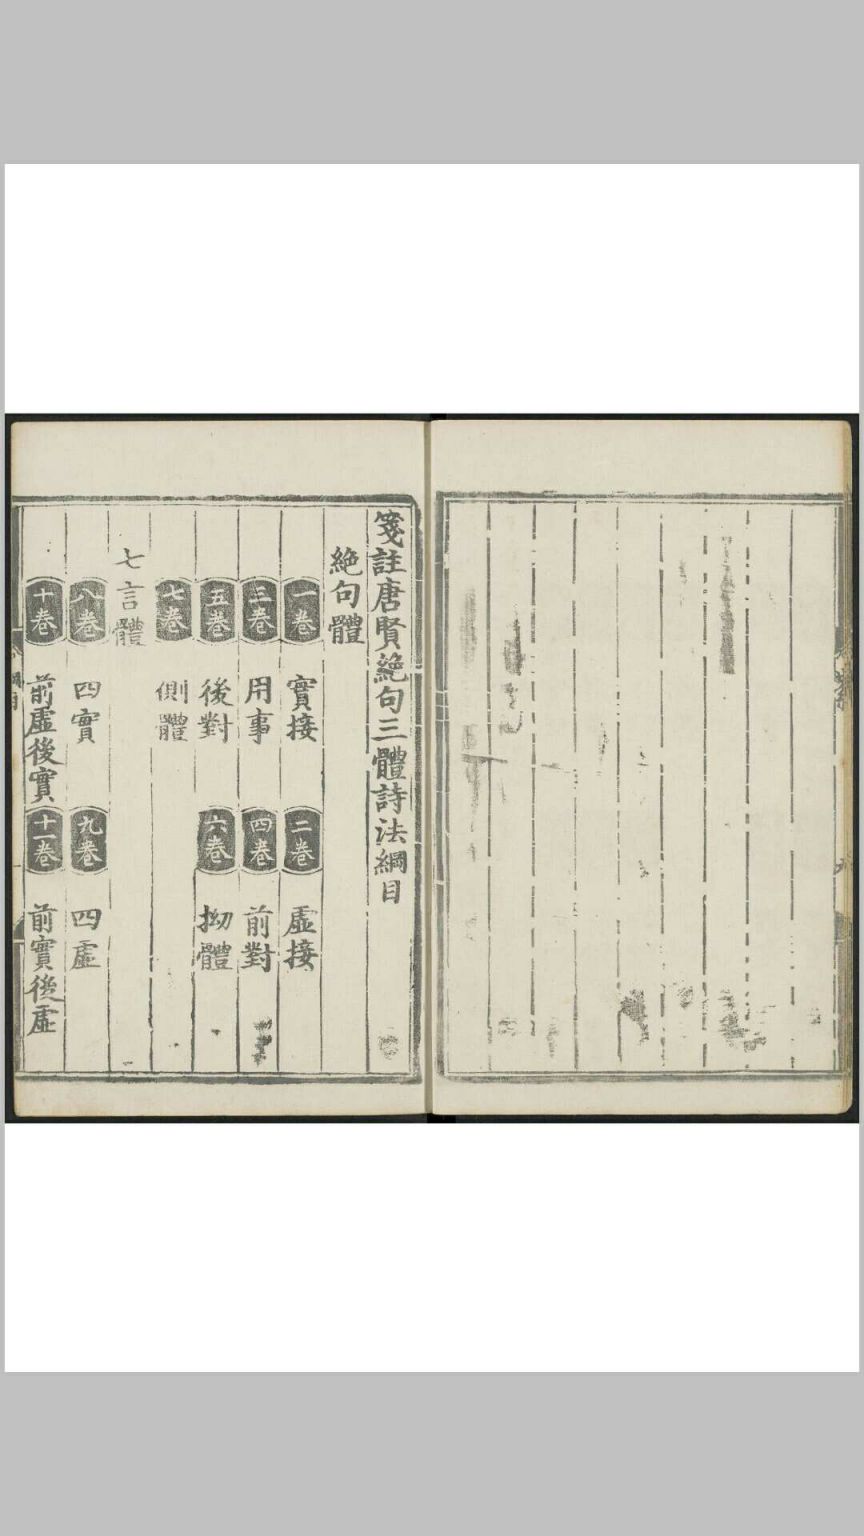 箋註唐賢絶句三體詩法綱目
絶句體
一卷 實接 二卷 虛接
三卷 用事 四卷 前對
五卷 後對 六卷 拗體
七卷 側體
七言體
八卷 四實 九卷 四虛
十卷 前虛後實 十一卷 前實後虛